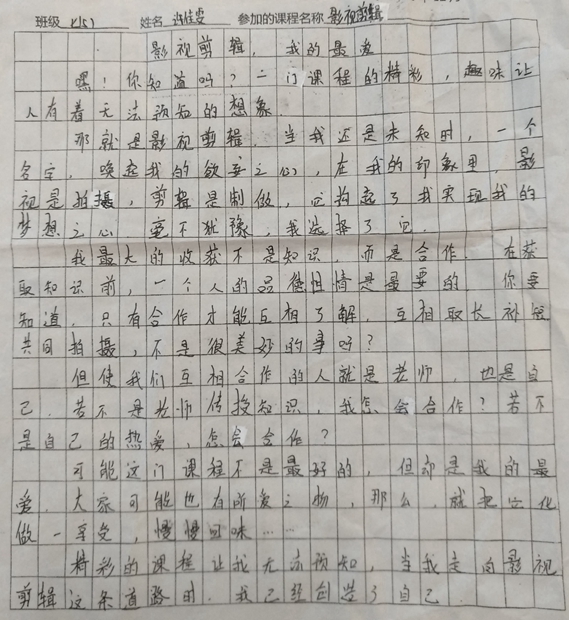 班级 七(5) 姓名 许佳雯 参加的课程名称 影视剪辑
影视剪辑,我的最爱
嘿!你知道吗?一门课程的精彩,趣味让
人有着无法预知的想象.
那就是影视剪辑.当我还是未知时,一个
名字,唤起我的欲妄之心,在我的印象里,影
视是拍摄,剪辑是制做,它构起了我实现我的
梦想之心.毫不犹豫,我选择了它.
我最大的收获不是知识,而是合作.在获
取知识前,一个人的品德性情是最要的.你要
知道,只有合作才能互相了解,互相取长补短
共同拍摄,不是很美好的事吗?
但使我们互相合作的人就是老师,也是自
己.若不是老师传授知识,我怎会合作?若不
是自己的热爱,怎会合作?
可能这门课程不是最好的,但却是我的最
爱.大家可能也有所爱之物,那么,就把它化
做一享受,慢慢回味……
精彩的课程让我无法预知,当我走向影视
剪辑这条道路时.我已经创造了自己.